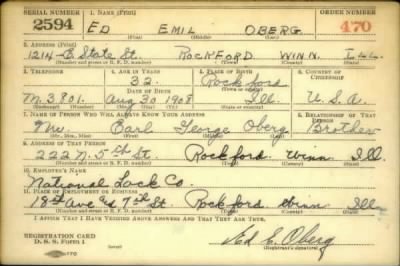 SERIAL NUMBER 1. NAME (Print) ORDER NUMBER
2594 ED EMIL OBERG 470
(First) (Middle) (Last)
2. ADDRESS (Print)
1214-E State St. ROCKFORD WINN. ILL.
(Number and street or R. F. D. number) (Town) (County) (State)
3. TELEPHONE 4. AGE IN YEARS 5. PLACE OF BIRTH 6. COUNTRY OF CITIZENSHIP
32 Rockford
DATE OF BIRTH (Town or county)
M. 3801 Aug 30 1908 Ill. U.S.A.
(Exchange) (No.) (Mo.) (Day) (Yr.) (State or country)
7. NAME OF PERSON WHO WILL ALWAYS KNOW YOUR ADDRESS 8. RELATIONSHIP OF THAT PERSON
Mr. Carl George Oberg Brother
(Mr., Mrs., Miss) (First) (Middle) (Last)
9. ADDRESS OF THAT PERSON
222 N. 5th St. Rockford Winn Ill
(Number and street or R. F. D. number) (Town) (County) (State)
10. EMPLOYER'S NAME
National Lock Co.
11. PLACE OF EMPLOYMENT OR BUSINESS
18th Ave and 7th St. Rockford Winn Ill
(Number and street or R. F. D. number) (Town) (County) (State)
I AFFIRM THAT I HAVE VERIFIED ABOVE ANSWERS AND THAT THEY ARE TRUE.
REGISTRATION CARD
D. S. S. Form 1 Ed E. Oberg
(Registrant's signature)